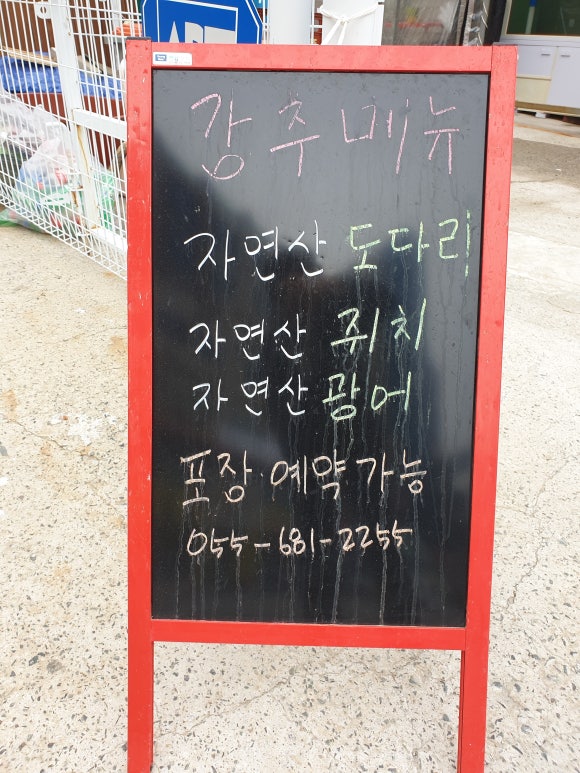 강추메뉴
자연산 도다리
자연산 쥐치
자연산 광어
포장·예약가능
055-681-2255